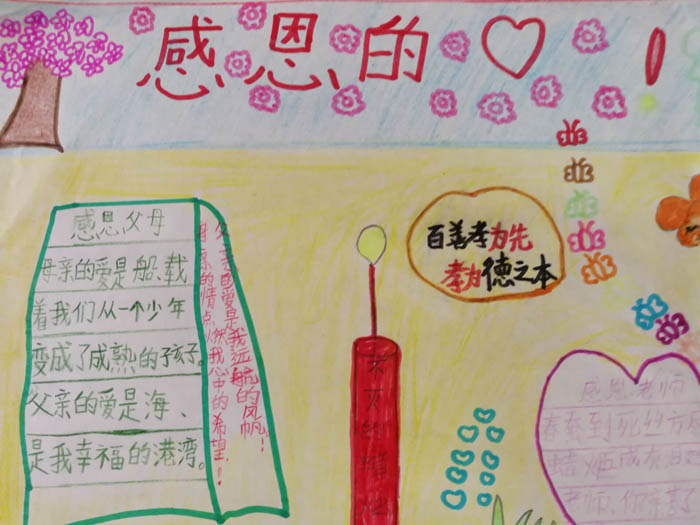 感恩的
感恩父母
母亲的爱是船、载
着我们从一个少年
变成了成熟的孩子。
父亲的爱是海、
是我幸福的港湾。
父亲的爱是我远航的风帆。!
母亲的情点燃我心中的希望!!
百善孝为先
孝为德之本
感恩老师
春蚕到死丝方
蜡炬成灰
老师、你亲